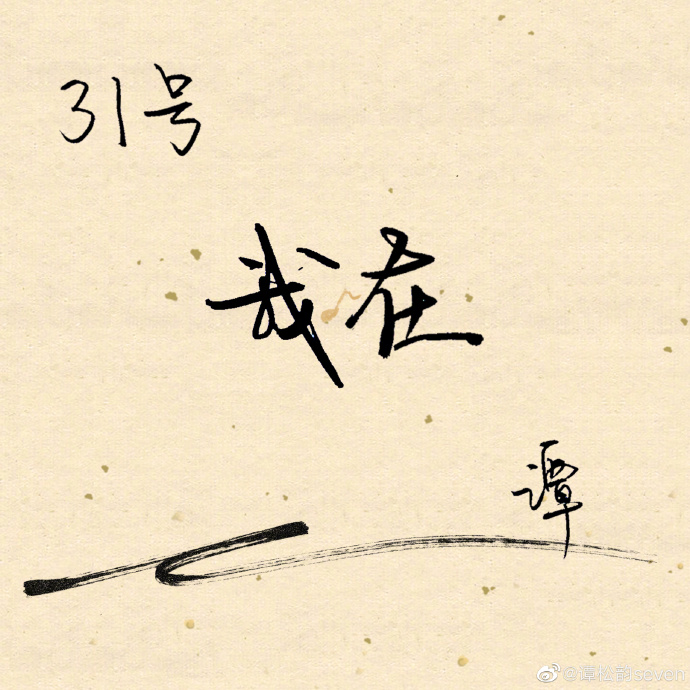 31号
我在
谭
@谭松韵seven